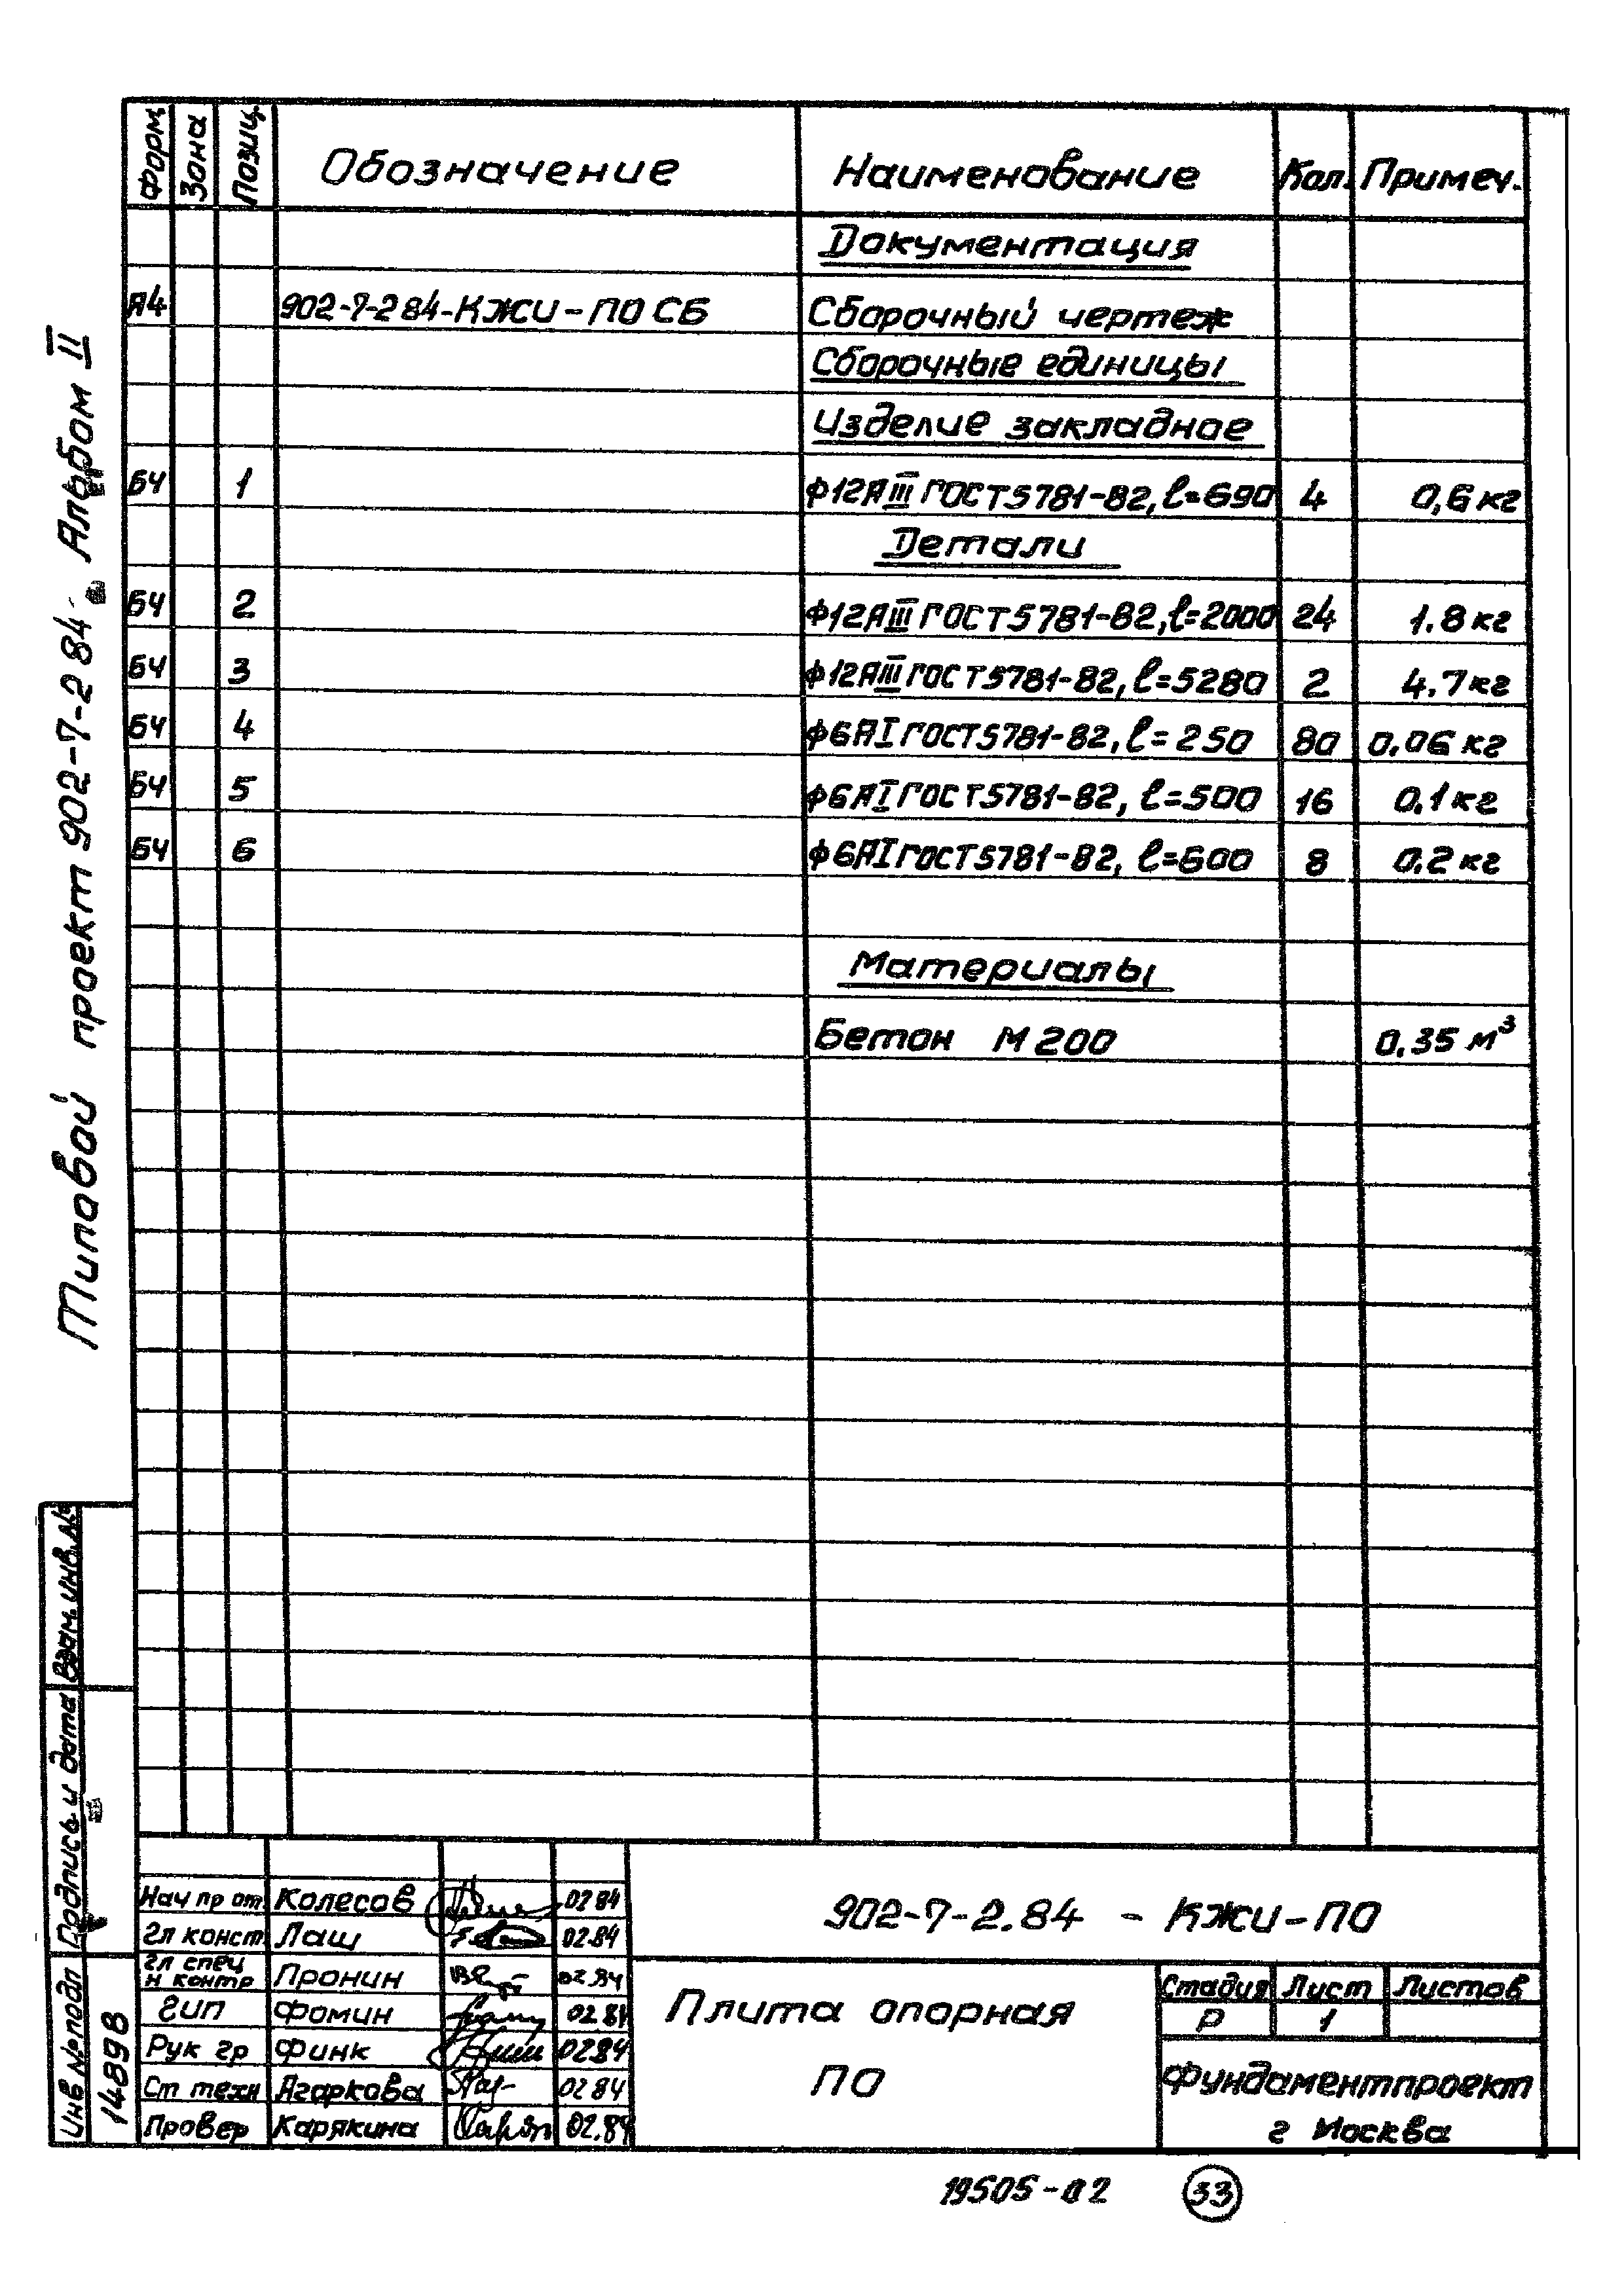 Типовой проект 902-7-2 84 Альбом II
Форм. Зона Позиц. Обозначение Наименование Кол. Примеч.
Документация
А4 902-7-2 84-КЖИ-ПО СБ Сборочный чертеж
Сборочные единицы
Изделие закладное
БЧ 1 ф12АIII ГОСТ5781-82, l=690 4 0,6 кг
Детали
БЧ 2 ф12АIII ГОСТ5781-82, l=2000 24 1.8 кг
БЧ 3 ф12АIII ГОСТ5781-82, l=5280 2 4.7 кг
БЧ 4 ф6АI ГОСТ5781-82, l=250 80 0.06 кг
БЧ 5 ф6АI ГОСТ5781-82, l=500 16 0.1 кг
БЧ 6 ф6АI ГОСТ5781-82, l=600 8 0.2 кг
Материалы
Бетон М200 0.35 м³
Взам. инв. №
Подпись и дата
Инв № подл
14898
Нач пр от. Колесов 02 84
Гл констр Лащ 02.84
Гл спец н контр Пронин 02.84
ГИП Фомин 02.84
Рук гр Финк 02.84
Ст техн Агаркова 02 84
Провер Карякина 02.84
902-7-2.84 - КЖИ-ПО
Плита опорная
ПО
Стадия Лист Листов
Р 1
Фундаментпроект
г Москва
19505-02 33